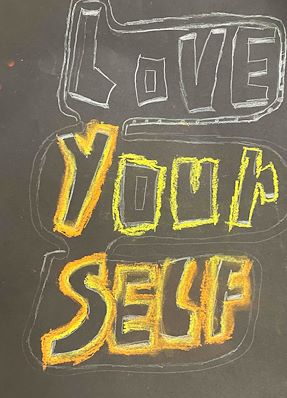 LOVE
YOUr
SELF